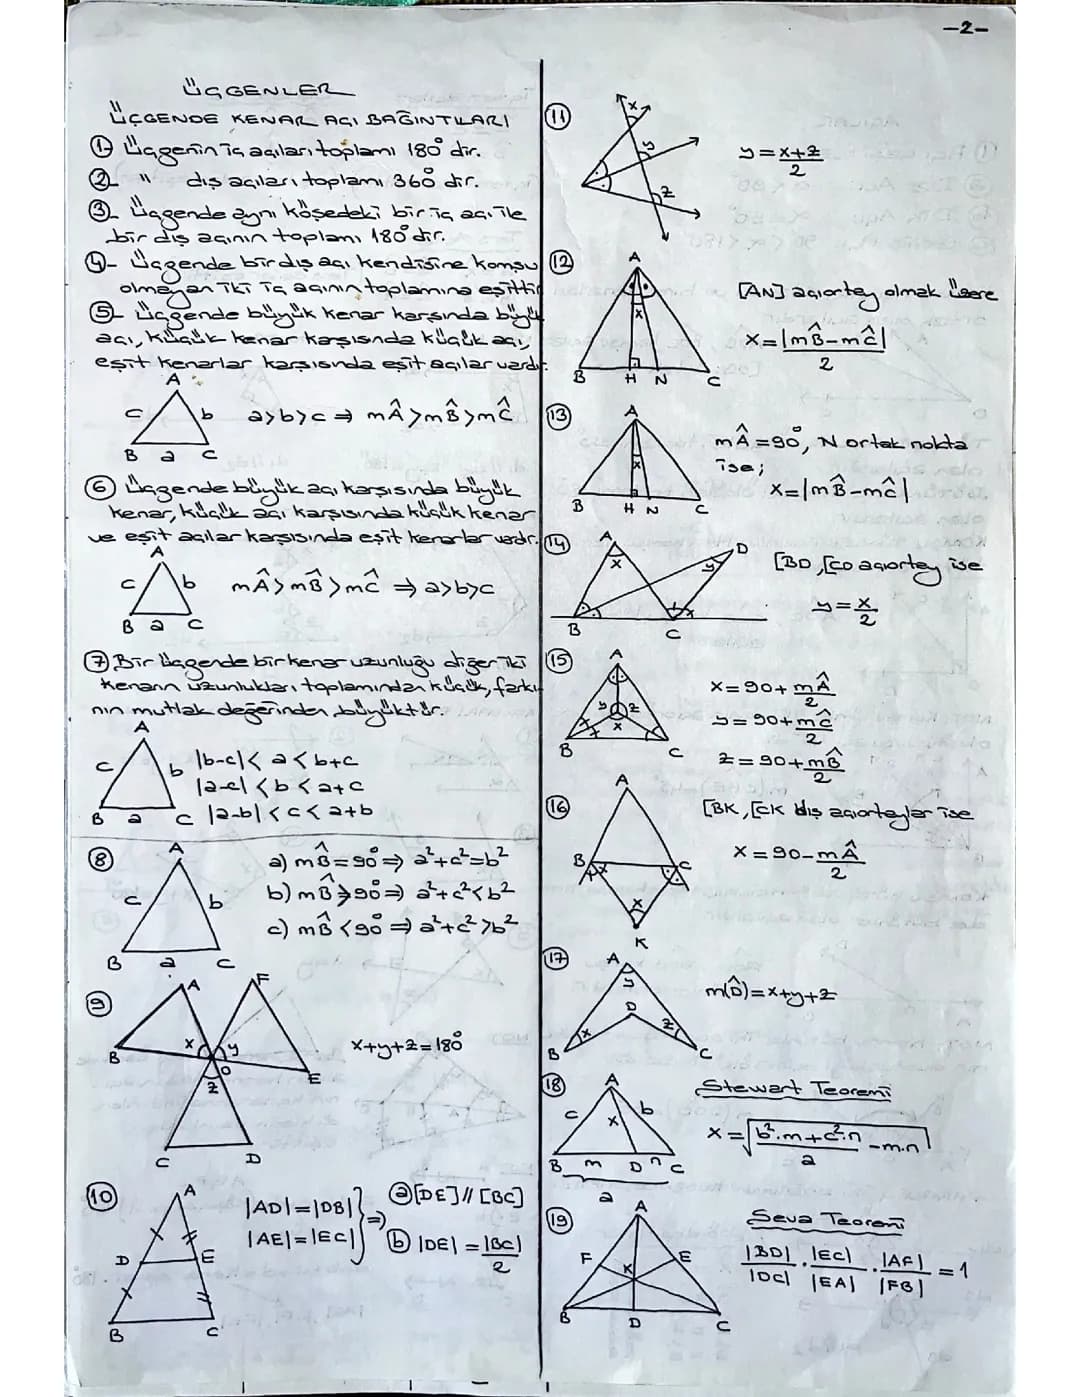 -2-
ÜÇGENLER
ÜÇGENDE KENAR AÇI BAĞINTILARI
1- Üçgenin iç açıları toplamı 180° dir.
2- " dış açıları toplamı 360° dir.
3- Üçgende aynı köşedeki bir iç açı ile
bir dış açının toplamı 180° dir.
4- Üçgende bir dış açı kendisine komşu
olmayan iki iç açının toplamına eşittir
5- Üçgende büyük kenar karşısında büyük
açı, küçük kenar karşısında küçük açı,
eşit kenarlar karşısında eşit açılar vardır.
A
c b
B a C
a>b>c ⇒ mÂ>mB̂>mĈ
6 Üçgende büyük açı karşısında büyük
kenar, küçük açı karşısında küçük kenar
ve eşit açılar karşısında eşit kenarlar vardır.
A
c b
B a C
mÂ>mB̂>mĈ ⇒ a>b>c
7 Bir üçgende bir kenar uzunluğu diğer iki
kenarın uzunlukları toplamından küçük, farkı
nın mutlak değerinden büyüktür.
A
c b
B a C
|b-c|<a<b+c
|a-c|<b<a+c
|a-b|<c<a+b
8
A
c b
B a C
a) mB̂=90° ⇒ a²+c²=b²
b) mB̂>90° ⇒ a²+c²<b²
c) mB̂<90° ⇒ a²+c²>b²
9
A F
B x y O E
z
C D
x+y+z=180°
10
A
D E
B C
|AD|=|DB|
|AE|=|EC|
⇒
a [DE]//[BC]
b |DE|=|BC|/2
11
x
y
z
y=x+z/2
12
A
x
B H N C
[AN] açıortay olmak üzere
x=|mB̂-mĈ|/2
13
A
x
B H N C
mÂ=90°, N orta nokta
ise;
x=|mB̂-mĈ|
14
A D
x y
B C x
[BD,[CD açıortay ise
y=x/2
15
A
y z
x
B C
x=90+mÂ/2
y=90+mĈ/2
z=90+mB̂/2
16
A
B C
x
K
[BK,[CK dış açıortaylar ise
x=90-mÂ/2
17
A
y
D
x z
B C
m(D̂)=x+y+z
18
A
c x b
B m D n C
a
Stewart Teoremi
x=√b².m+c².n/a -m.n
19
A
F K E
B D C
Seva Teoremi
|BD|/|DC| . |EC|/|EA| . |AF|/|FB| =1